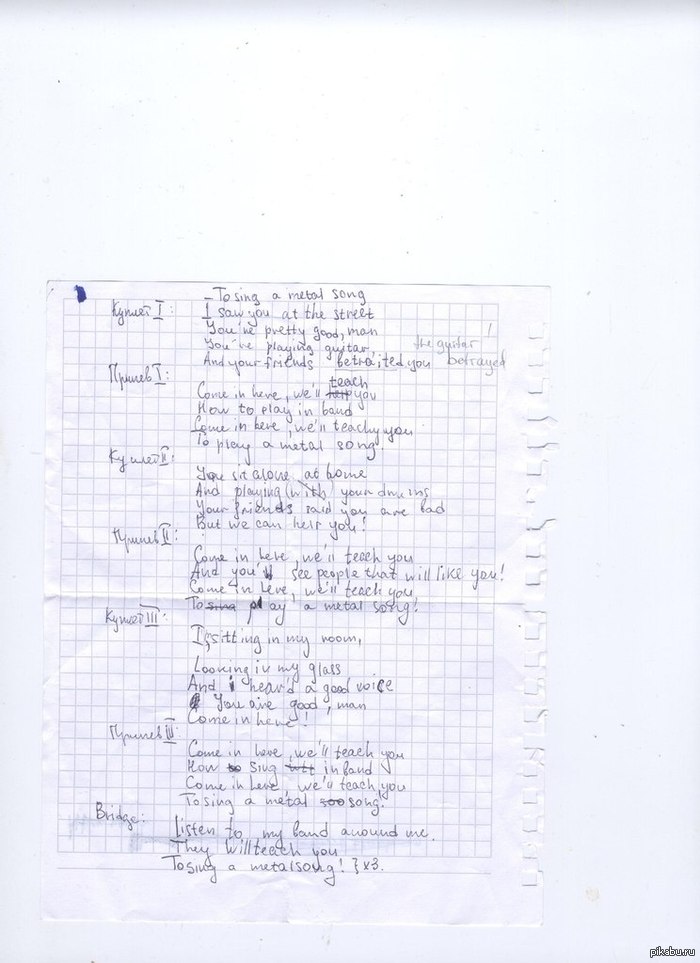 To sing a metal song
Куплет I: I saw you at the street
You're pretty good, man
You're playing guitar the guitar
And your friends betraited you betrayed
Припев I: teach
Come in here, we'll help you
How to play in band
Come in here, we'll teachy you
To play a metal song.
Куплет II:
You sit alone at home
And playing (with) your drums
Your friends said you are bad
But we can help you!
Припев II:
Come in here, we'll teach you
And you'll see people that will like you!
Come in here, we'll teach you
To sing play a metal song!
Куплет III:
I sitting in my room,
Looking in my glass
And i heard a good voice
You are good, man
Come in here!
Припев III:
Come in here, we'll teach you
How to sing in band
Come in here, we'll teach you
To sing a metal song!
Bridge:
Listen to my band around me.
They will teach you
To sing a metal song! } x3.
pikabu.ru